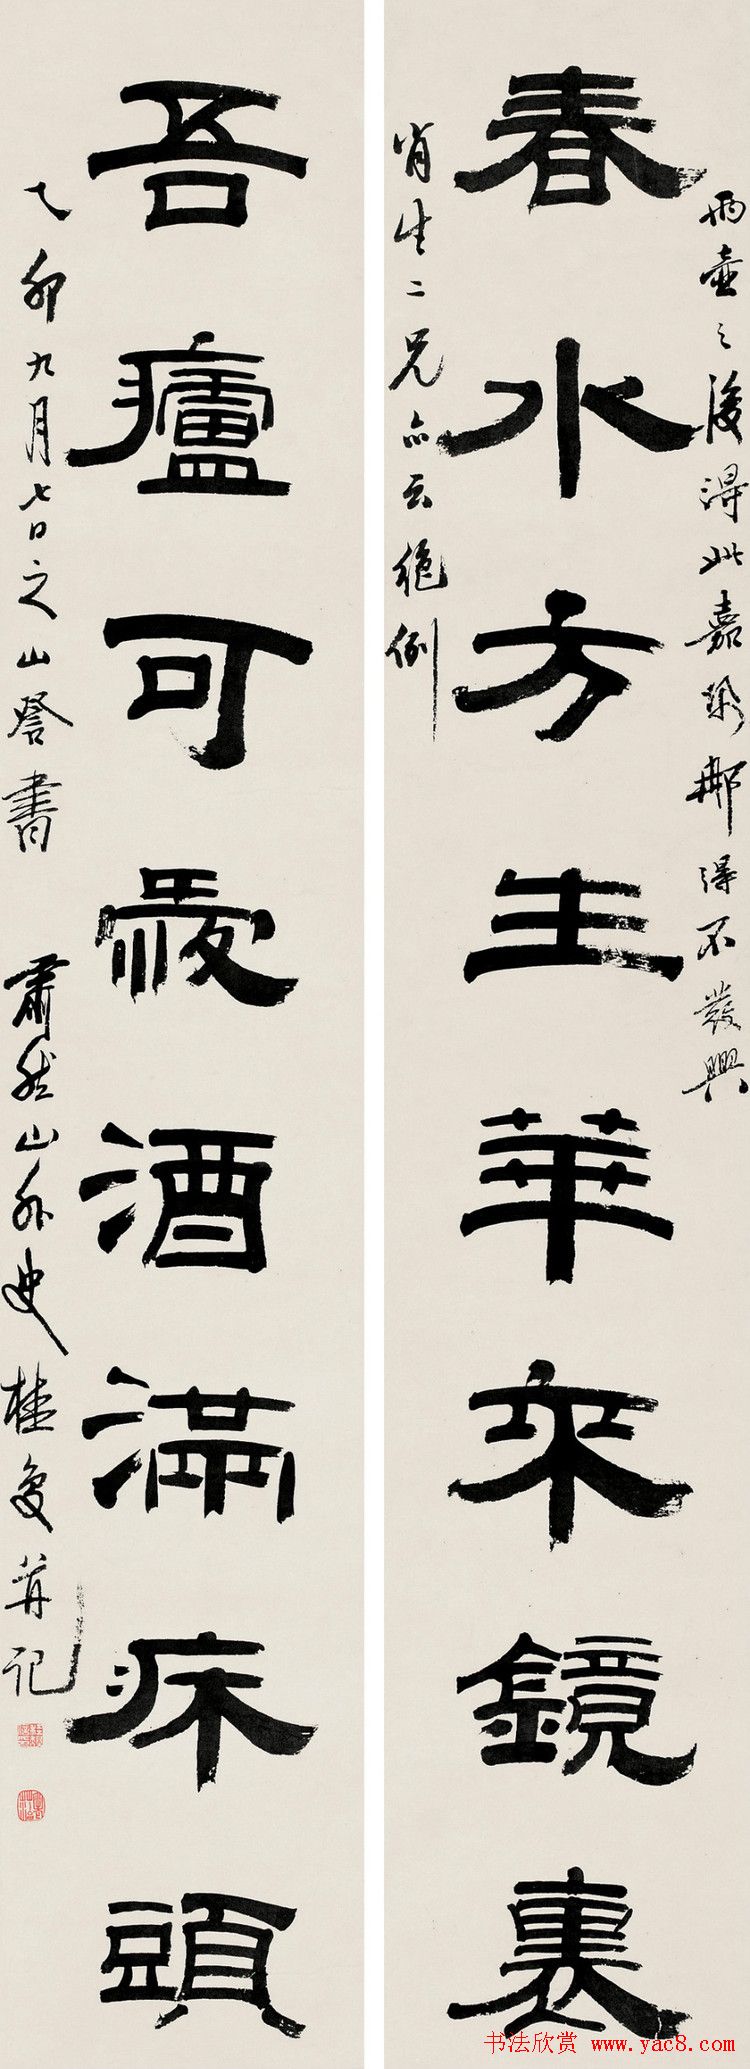 兩壺之後得此嘉聯那得不發興
春水方生華來鏡裏
肖生二兄亦云絕倒
吾廬可愛酒滿床頭
乙卯九月七日之山書 肅然山外史桂馥并記
书法欣赏 www.yac8.com